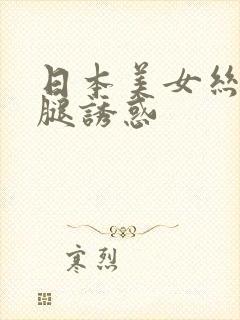 日本美女絲
腿誘惑
寒烈